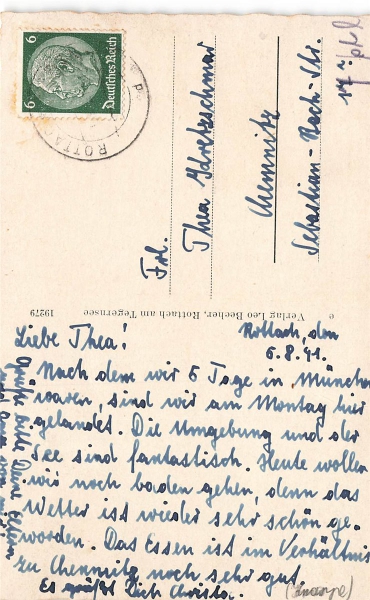 Deutsches Reich
6
6
ROTTACH
Frl.
Thea Kretzschmar
Chemnitz
Sebastian-Bach-Str.
17
Verlag Leo Becher, Rottach am Tegernsee
19279
Rottach, den
6.8.41.
Liebe Thea!
Nach dem wir 5 Tage in München
waren, sind wir am Montag hier
gelandet. Die Umgebung und der
See sind fantastisch. Heute wollen
wir noch baden gehen, denn das
Wetter ist wieder sehr schön ge-
worden. Das Essen ist im Verhältnis
zu Chemnitz noch sehr gut.
Es grüßt Dich Christa.
Grüße bitte Deine Eltern